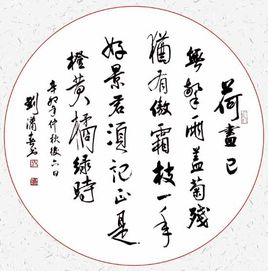 荷盡已
無擎雨盖菊殘
猶有傲霜枝一年
好景君須記正是
橙黄橘绿時
辛卯年仲秋後六日
劉瀟